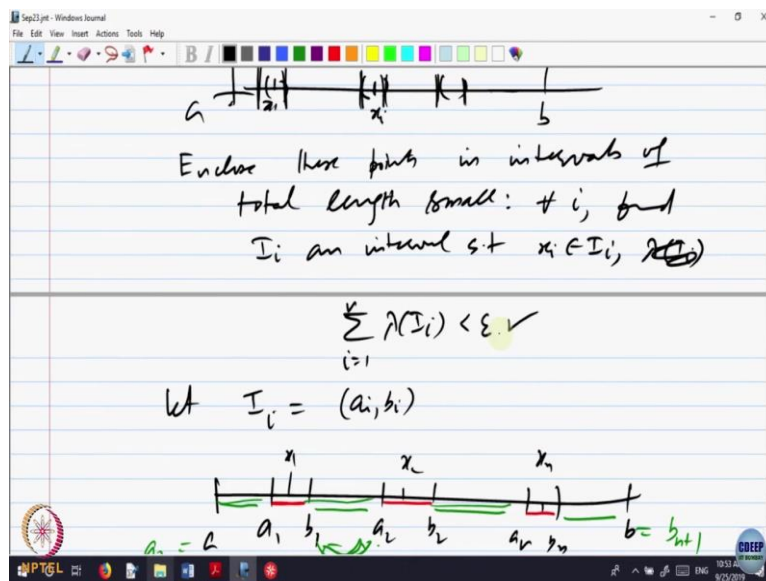 Sep23.jnt - Windows Journal
File Edit View Insert Actions Tools Help
B I
a x₁ xᵢ b
Enclose these points in intervals of
total length small : ∀ i, find
Iᵢ an interval s.t xᵢ ∈ Iᵢ,
∑ᵢ₌₁ʳ λ(Iᵢ) < ε. ✓
let Iᵢ = (aᵢ, bᵢ)
x₁ x₂ xₙ
a₁ b₁ a₂ b₂ bₙ b = bₙ₊₁
= a
NPTEL
CDEEP
IIT BOMBAY
ENG
10:53 AM
9/25/2019